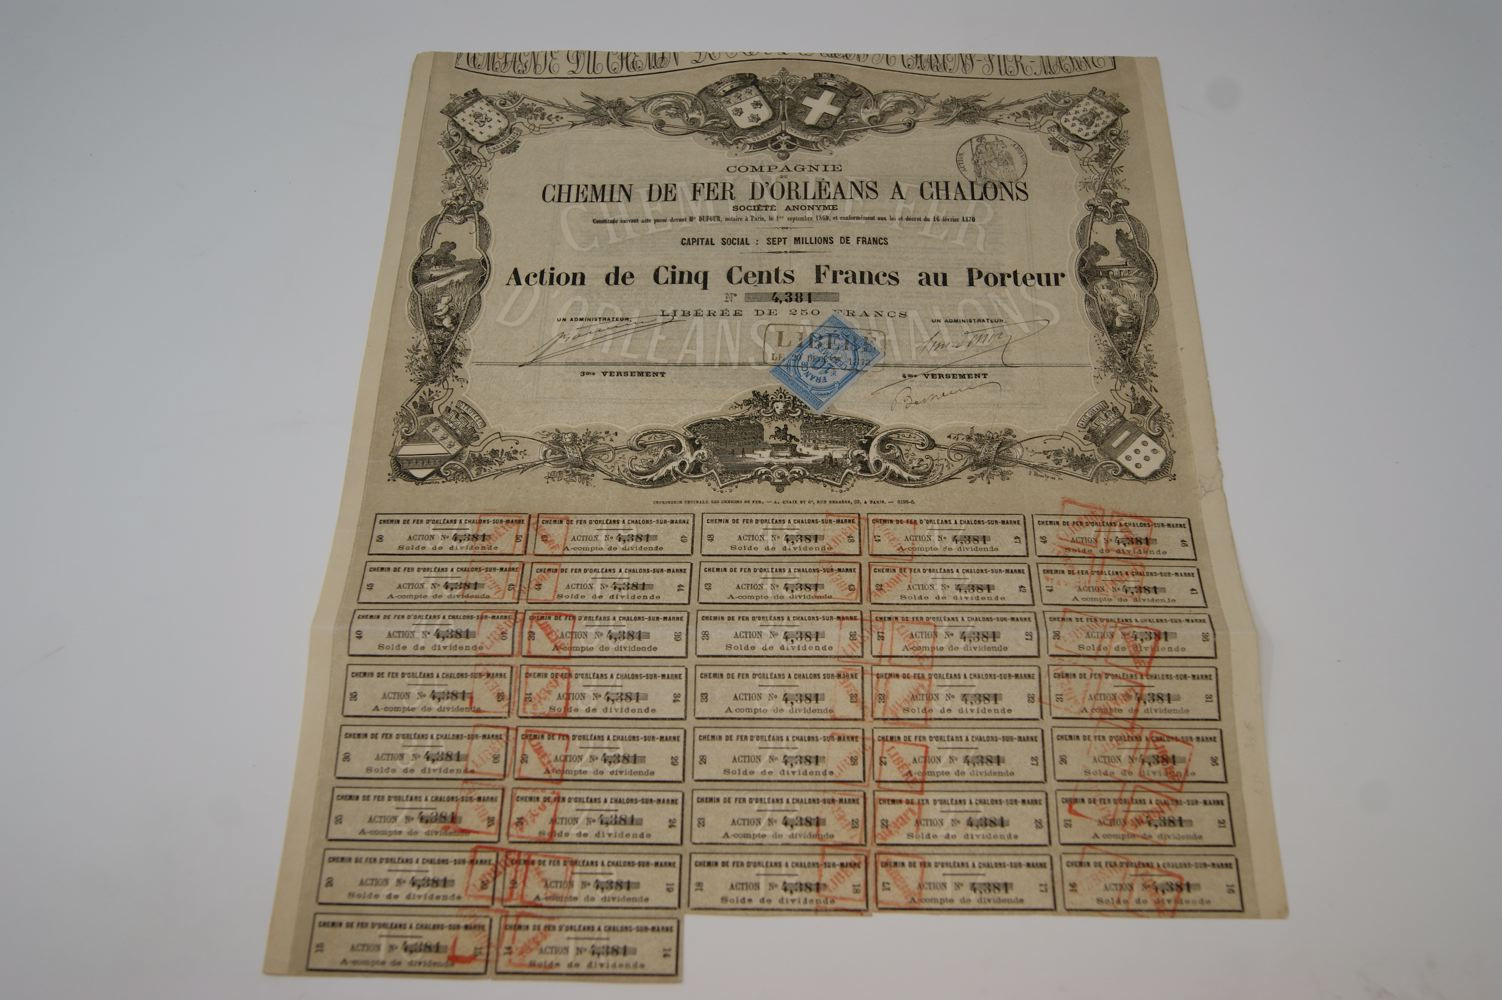 COMPAGNIE
DU
CHEMIN DE FER D'ORLÉANS A CHALONS
SOCIÉTÉ ANONYME
Constituée suivant acte passé devant Me DUFOUR, notaire à Paris, le 1er septembre 1869, et conformément aux loi et décret du 16 février 1870
CAPITAL SOCIAL : SEPT MILLIONS DE FRANCS
Action de Cinq Cents Francs au Porteur
N° 4,381
LIBÉRÉE DE 250 FRANCS
UN ADMINISTRATEUR, UN ADMINISTRATEUR,
LIBÉRÉ
3me VERSEMENT 4me VERSEMENT
IMPRIMERIE CENTRALE DES CHEMINS DE FER. — A. CHAIX ET Cie, RUE BERGÈRE, 20, A PARIS. —
CHEMIN DE FER D'ORLÉANS A CHALONS-SUR-MARNE CHEMIN DE FER D'ORLÉANS A CHALONS-SUR-MARNE CHEMIN DE FER D'ORLÉANS A CHALONS-SUR-MARNE CHEMIN DE FER D'ORLÉANS A CHALONS-SUR-MARNE CHEMIN DE FER D'ORLÉANS A CHALONS-SUR-MARNE
50 ACTION N° 4,381 50 49 ACTION N° 4,381 49 48 ACTION N° 4,381 48 47 ACTION N° 4,381 47 46 ACTION N° 4,381 46
Solde de dividende A-compte de dividende Solde de dividende A-compte de dividende Solde de dividende
CHEMIN DE FER D'ORLÉANS A CHALONS-SUR-MARNE CHEMIN DE FER D'ORLÉANS A CHALONS-SUR-MARNE CHEMIN DE FER D'ORLÉANS A CHALONS-SUR-MARNE CHEMIN DE FER D'ORLÉANS A CHALONS-SUR-MARNE CHEMIN DE FER D'ORLÉANS A CHALONS-SUR-MARNE
45 ACTION N° 4,381 45 44 ACTION N° 4,381 44 43 ACTION N° 4,381 43 42 ACTION N° 4,381 42 41 ACTION N° 4,381 41
A-compte de dividende Solde de dividende A-compte de dividende Solde de dividende A-compte de dividende
CHEMIN DE FER D'ORLÉANS A CHALONS-SUR-MARNE CHEMIN DE FER D'ORLÉANS A CHALONS-SUR-MARNE CHEMIN DE FER D'ORLÉANS A CHALONS-SUR-MARNE CHEMIN DE FER D'ORLÉANS A CHALONS-SUR-MARNE CHEMIN DE FER D'ORLÉANS A CHALONS-SUR-MARNE
40 ACTION N° 4,381 40 39 ACTION N° 4,381 39 38 ACTION N° 4,381 38 37 ACTION N° 4,381 37 36 ACTION N° 4,381 36
Solde de dividende A-compte de dividende Solde de dividende A-compte de dividende Solde de dividende
CHEMIN DE FER D'ORLÉANS A CHALONS-SUR-MARNE CHEMIN DE FER D'ORLÉANS A CHALONS-SUR-MARNE CHEMIN DE FER D'ORLÉANS A CHALONS-SUR-MARNE CHEMIN DE FER D'ORLÉANS A CHALONS-SUR-MARNE CHEMIN DE FER D'ORLÉANS A CHALONS-SUR-MARNE
35 ACTION N° 4,381 35 34 ACTION N° 4,381 34 33 ACTION N° 4,381 33 32 ACTION N° 4,381 32 31 ACTION N° 4,381 31
A-compte de dividende Solde de dividende A-compte de dividende Solde de dividende A-compte de dividende
CHEMIN DE FER D'ORLÉANS A CHALONS-SUR-MARNE CHEMIN DE FER D'ORLÉANS A CHALONS-SUR-MARNE CHEMIN DE FER D'ORLÉANS A CHALONS-SUR-MARNE CHEMIN DE FER D'ORLÉANS A CHALONS-SUR-MARNE CHEMIN DE FER D'ORLÉANS A CHALONS-SUR-MARNE
30 ACTION N° 4,381 30 29 ACTION N° 4,381 29 28 ACTION N° 4,381 28 27 ACTION N° 4,381 27 26 ACTION N° 4,381 26
Solde de dividende A-compte de dividende Solde de dividende A-compte de dividende Solde de dividende
CHEMIN DE FER D'ORLÉANS A CHALONS-SUR-MARNE CHEMIN DE FER D'ORLÉANS A CHALONS-SUR-MARNE CHEMIN DE FER D'ORLÉANS A CHALONS-SUR-MARNE CHEMIN DE FER D'ORLÉANS A CHALONS-SUR-MARNE CHEMIN DE FER D'ORLÉANS A CHALONS-SUR-MARNE
25 ACTION N° 4,381 25 24 ACTION N° 4,381 24 23 ACTION N° 4,381 23 22 ACTION N° 4,381 22 21 ACTION N° 4,381 21
A-compte de dividende Solde de dividende A-compte de dividende Solde de dividende A-compte de dividende
CHEMIN DE FER D'ORLÉANS A CHALONS-SUR-MARNE CHEMIN DE FER D'ORLÉANS A CHALONS-SUR-MARNE CHEMIN DE FER D'ORLÉANS A CHALONS-SUR-MARNE CHEMIN DE FER D'ORLÉANS A CHALONS-SUR-MARNE CHEMIN DE FER D'ORLÉANS A CHALONS-SUR-MARNE
20 ACTION N° 4,381 20 19 ACTION N° 4,381 19 18 ACTION N° 4,381 18 17 ACTION N° 4,381 17 16 ACTION N° 4,381 16
Solde de dividende A-compte de dividende Solde de dividende A-compte de dividende Solde de dividende
CHEMIN DE FER D'ORLÉANS A CHALONS-SUR-MARNE CHEMIN DE FER D'ORLÉANS A CHALONS-SUR-MARNE
15 ACTION N° 4,381 15 14 ACTION N° 4,381 14
A-compte de dividende Solde de dividende